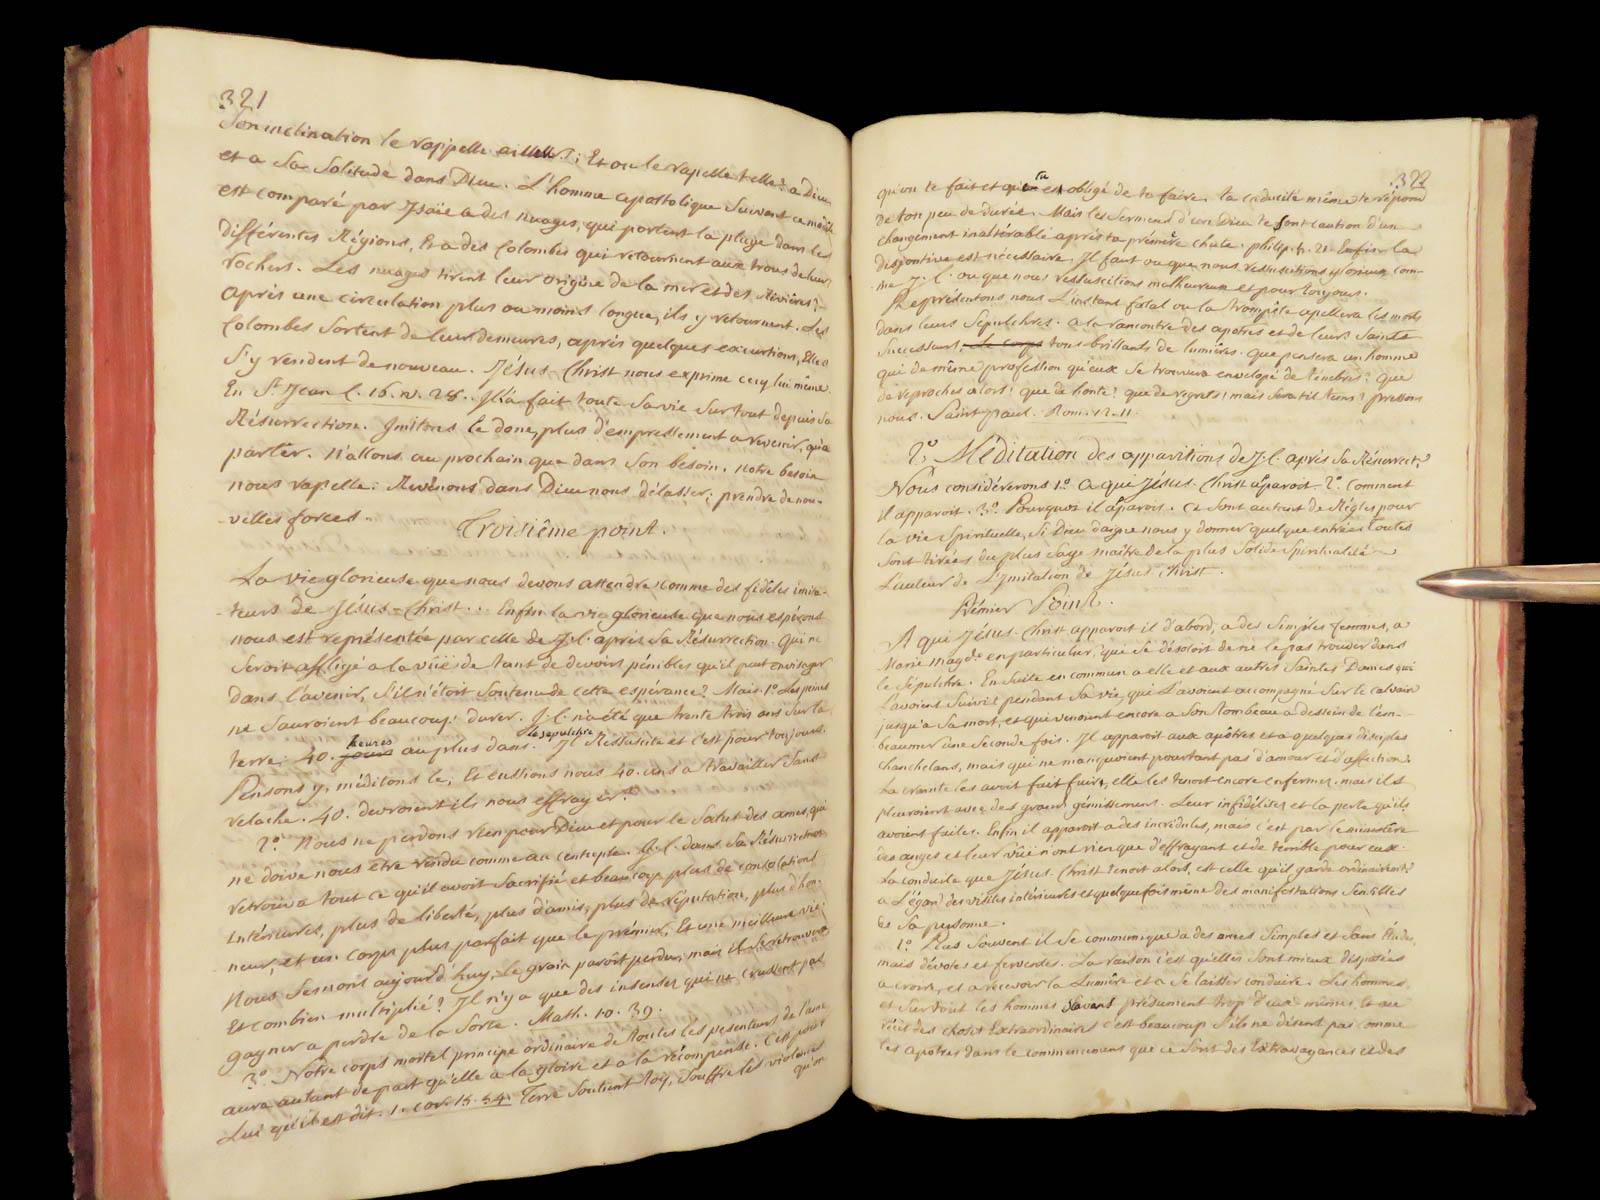 321
Son inclination le rappelle ailleurs; Et ou le rapelle t elle? a Dieu
et a Sa Solitude dans Dieu. L'homme apostolique Suivant ce modèle
est comparé par Isaïe a des nuages, qui portent la pluye dans les
différentes Régions, Et a des Colombes qui retournent aux trous de leurs
rochers. Les nuages tirent leur origine de la mer et des Rivières;
après une circulation plus ou moins longue, ils y retournent. Les
Colombes Sortent de leur demeures, après quelques excurtions, Elles
S'y rendent de nouveau. Jésus-Christ nous exprime cecy lui même
En St Jean C. 16. v. 28. Il a fait toute Sa vie Sur tout depuis Sa
Résurrection. Imitons le donc, plus d'empressement a revenir, qu'a
partir. N'allons au prochain que dans Son besoin. notre besoin
nous rapelle: Revenons dans Dieu nous délasser; prendre de nou-
-velles forces.
Troisième point.
La vie glorieuse que nous devons attendre comme des fidèles imita-
-teurs de Jésus-Christ... Enfin la vie glorieuse que nous espérons
nous est représentée par celle de J. C. après Sa Résurrection. Qui ne
Seroit affligé a la vüe de tant de devoirs pénibles qu'il peut envisager
dans l'avenir, S'il n'étoit Soutenu de cette espérance? Mais 1.º Les peines
ne Sauroient beaucoup durer. J. C. n'a été que trente trois ans Sur la
terre; 40. jours heures au plus dans le sepulchre. Il Ressuscite et c'est pour toujours.
Pensons y, méditons le; Et eussions nous 40. ans a travailler Sans
relache. 40. devroient ils nous effrayer?
2.º Nous ne perdons rien pour Dieu et pour le Salut des ames, qui
ne doive nous être rendu comme au centuple. J. C. dans Sa Résurrection
retrouva tout ce qu'il avoit Sacrifié et beaucoup plus de consolations
Intérieures, plus de liberté, plus d'amis, plus de réputation, plus d'hon-
neur, et un corps plus parfait que le prémier, Et une meilleure vie
Nous Semons aujourd'huy; Le grain paroît perdu; mais il Se retrouvera
Et combien multiplié? Il n'y a que des insensés qui ne crussent pas
gagner a perdre de la Sorte. Math. 10. 39.
3.º Notre corps mortel principe ordinaire de toutes les pesenteurs de l'ame
aura autant de part qu'elle a la gloire et a la récompense. C'est pour
Lui qu'il est dit. 1. Cor. 15. 54. Terre Soutient toy, Souffre les violences
qu'on
322
qu'on te fait et qu'on est obligé de te faire. ta caducité même te répond
De ton peu de durée. Mais les Sermens d'un Dieu te Sont caution d'un
changement inaltérable après ta prémière chute. philip. 3. 21. Enfin la
disjontive est nécessaire. Il faut ou que nous ressuscitions glorieux com-
-me J. C. ou que nous ressuscitions malheureux et pour toujours.
Représentons nous L'instant fatal ou la trompête apellera les morts
dans leurs Sépulchres. a la rancontre des apotres et de leurs Saints
Successeurs, Le corps tous brillants de lumières. que pensera un homme
qui de même profession qu'eux Se trouvera envelopé de ténèbres? que
de reproches alors! que de honte! que de regrets! mais Sera t il tems? pressons
nous. Saint paul. Rom. 12. 11.
2.º Méditation des apparitions de J. C. après Sa Résurrect.
Nous considérerons 1.º a que Jésus-Christ aparoit. 2.º Comment
il apparoit. 3.º Pourquoi il aparoit. Ce Sont autant de Règles pour
la vie Spirituelle, Si Dieu daigne nous y donner quelque entrée. Toutes
Sont tirées du plus Sage maître De la plus Solide Spiritualité
L'auteur de L'Imitation de Jésus Christ.
Prémier Point.
A qui Jésus-Christ apparoit il d'abord, a des Simples femmes, a
Marie magd.e en particulier, qui Se désoloit de ne le pas trouver dans
le Sépulchre. En Suite en commun a elle et aux autres Saintes Dames qui
L'avoient Suivie pendant Sa vie, qui L'avoient accompagné Sur le calvaire
jusqu'a Sa mort, et qui venoient encore a Son tombeau a dessein de l'em-
beaumer une Seconde fois. Il apparoit aux apôtres et a quelques disciples
chanchelans, mais qui ne manquoient pourtant pas d'amour et d'affection.
La crainte les avoit fait fuire, elle les tenoit encore enfermés. mais ils
pleuroient avec des grans gémissemens. Leur infidélités et la perte qu'ils
avoient faite. Enfin il apparoit a des incrédules, mais c'est par le ministère
des anges et leur vüe n'ont rien que d'effrayant et de terrible pour eux.
La conduite que Jésus-Christ tenoit alors, est celle qu'il garde ordinairement
a L'égard des visites intérieures et quelquefois même des manifestations Sensibles
de Sa personne.
1.º Plus Souvent il Se communique a des ames Simples et Sans Etudes,
mais dévotes et ferventes. La raison c'est qu'elles Sont mieux disposées
a croire, et a recevoir la Lumière et a Se laisser conduire. Les hommes
et Sur tout les hommes Savans présument trop d'eux mêmes. a au
récit des choses Extraordinaires c'est beaucoup S'ils ne disent pas comme
les apotres dans le commencement que ce Sont des Extravagances et des